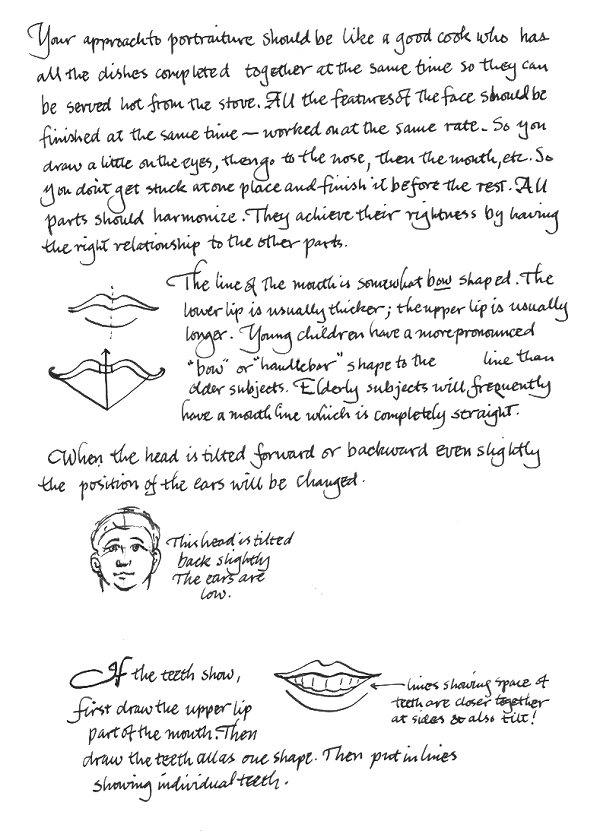 Your approach to portraiture should be like a good cook who has
all the dishes completed together at the same time so they can
be served hot from the stove. All the features of the face should be
finished at the same time — worked on at the same rate. So you
draw a little on the eyes, then go to the nose, then the mouth, etc. So
you don't get stuck at one place and finish it before the rest. All
parts should harmonize. They achieve their rightness by having
the right relationship to the other parts.
The line of the mouth is somewhat bow shaped. The
lower lip is usually thicker; the upper lip is usually
longer. Young children have a more pronounced
"bow" or "handlebar" shape to the line than
older subjects. Elderly subjects will frequently
have a mouth line which is completely straight.
When the head is tilted forward or backward even slightly
the position of the ears will be changed.
This head is tilted
back slightly
The ears are
low.
If the teeth show,
first draw the upper lip
part of the mouth. Then
draw the teeth all as one shape. Then put in lines
showing individual teeth.
lines showing space of
teeth are closer together
at sides & also tilt!